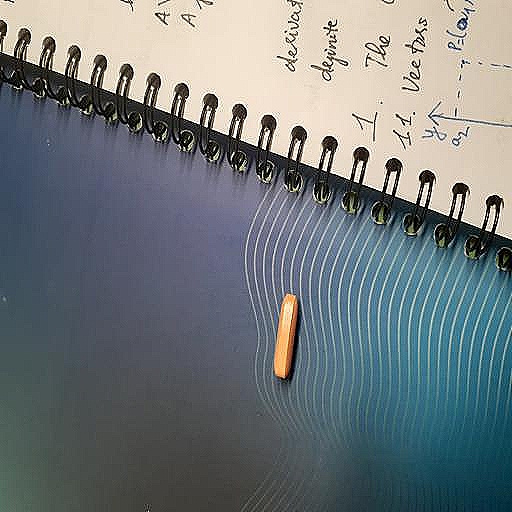 A
A
derivat
definite
1. The
1.1. Vectors
y
a₂
P=(a₁